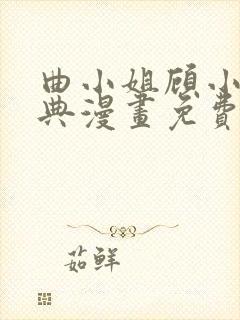 曲小姐顾小
典漫畫免費
茹鲜